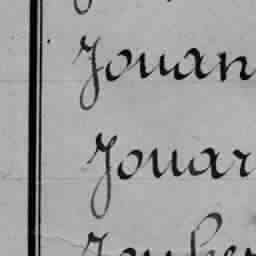 Jouan
Jouar